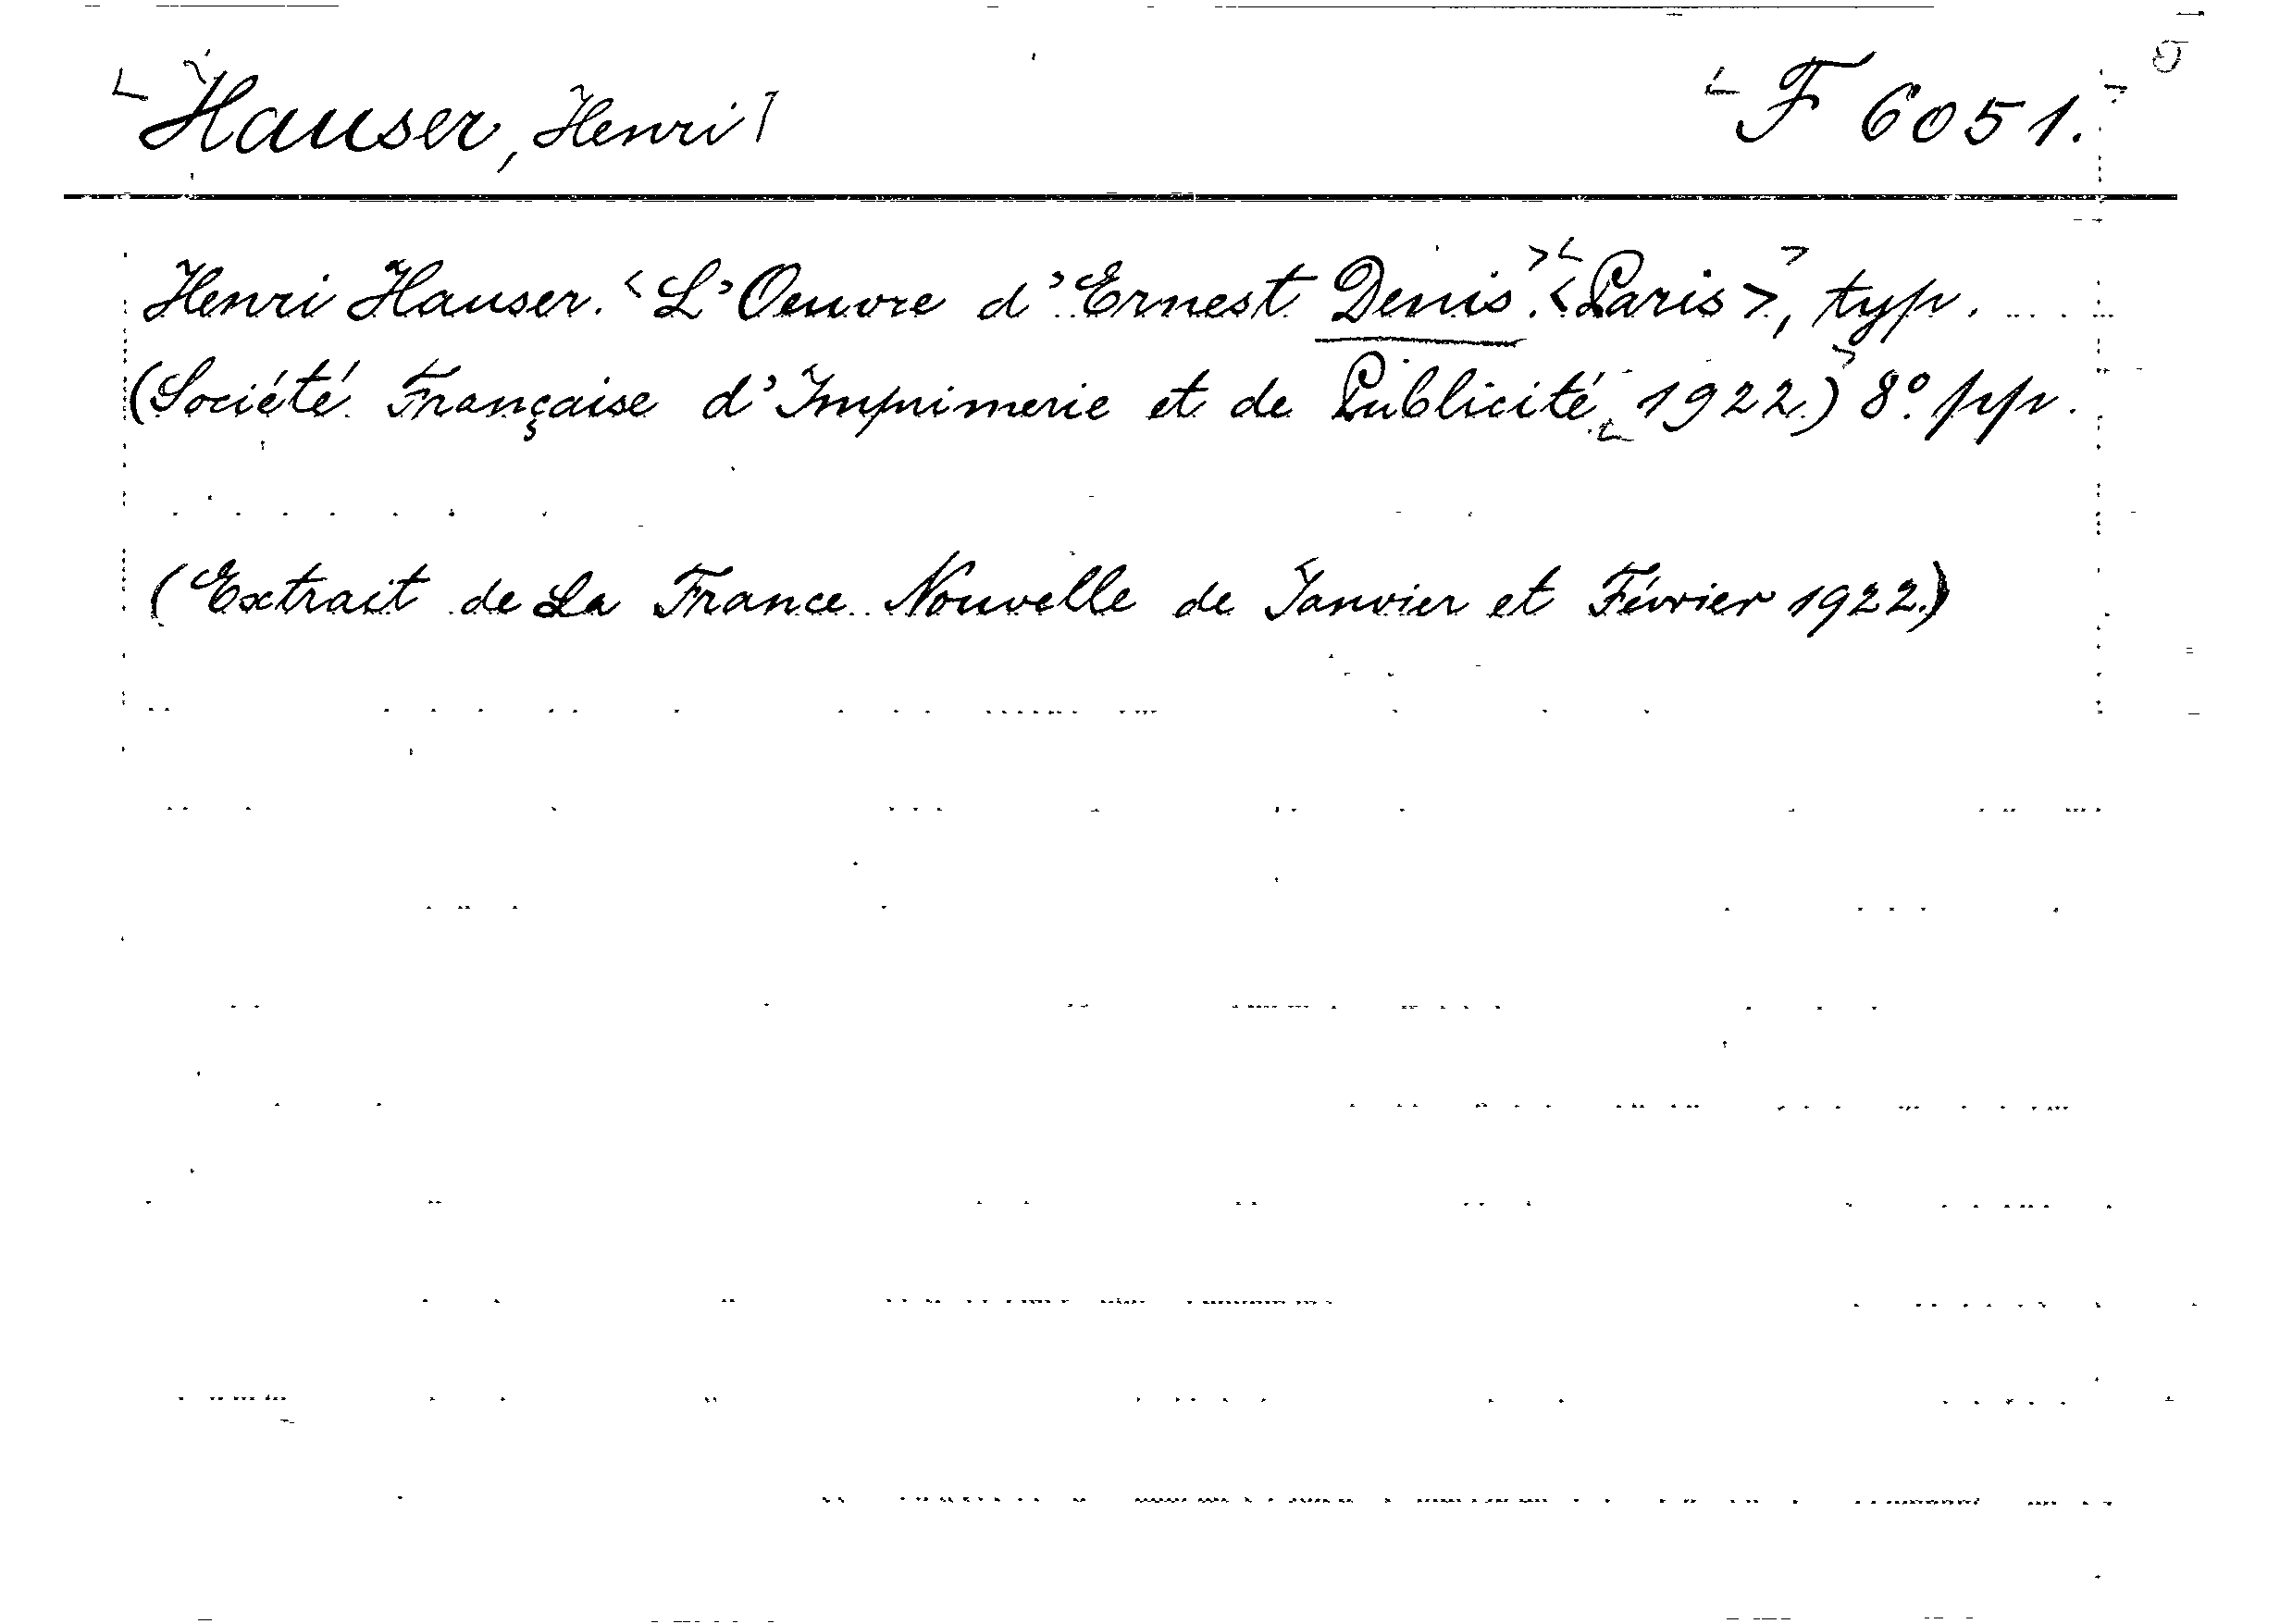 Hauser, Henri F 6051.
Henri Hauser. L'Oeuvre d'Ernest Denis. <Paris>, typ.
(Société Française d'Imprimerie et de Publicité 1922.) 8° ppv.
(Extrait de La France Nouvelle de Janvier et Février 1922.)